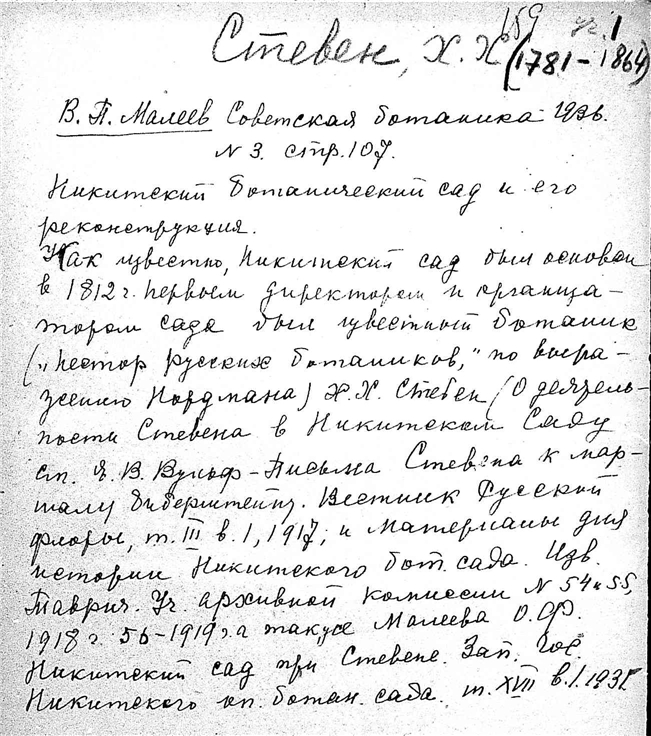 159 уг. 1
Стевен, Х. Х. (1781-1864)
В. П. Малеев Советская ботаника 193 в.
N 3. стр. 107.
Никитский ботанический сад и его
реконструкция.
Как известно, Никитский сад был основан
в 1812 г. первым директором и организа-
тором сада был известный ботаник
(„Нестор русских ботаников," по выра-
жению Нордмана) Х. Х. Стевен (О деятель-
ности Стевена в Никитском Саду
сп. Е. В. Вульф - Письма Стевена к мар-
шалу Биберштейну. Вестник Русской
флоры, т. III в. 1, 1917, и материалы для
истории Никитского бот. сада. Изв.
Таврич. Уч. архивной комиссии N 54 и 55,
1918 г. 56-1919 г. а также Малеева О. Ф.
Никитский сад при Стевене. Зап. Гос.
Никитского оп. ботан. сада. т. XVII в. 1.